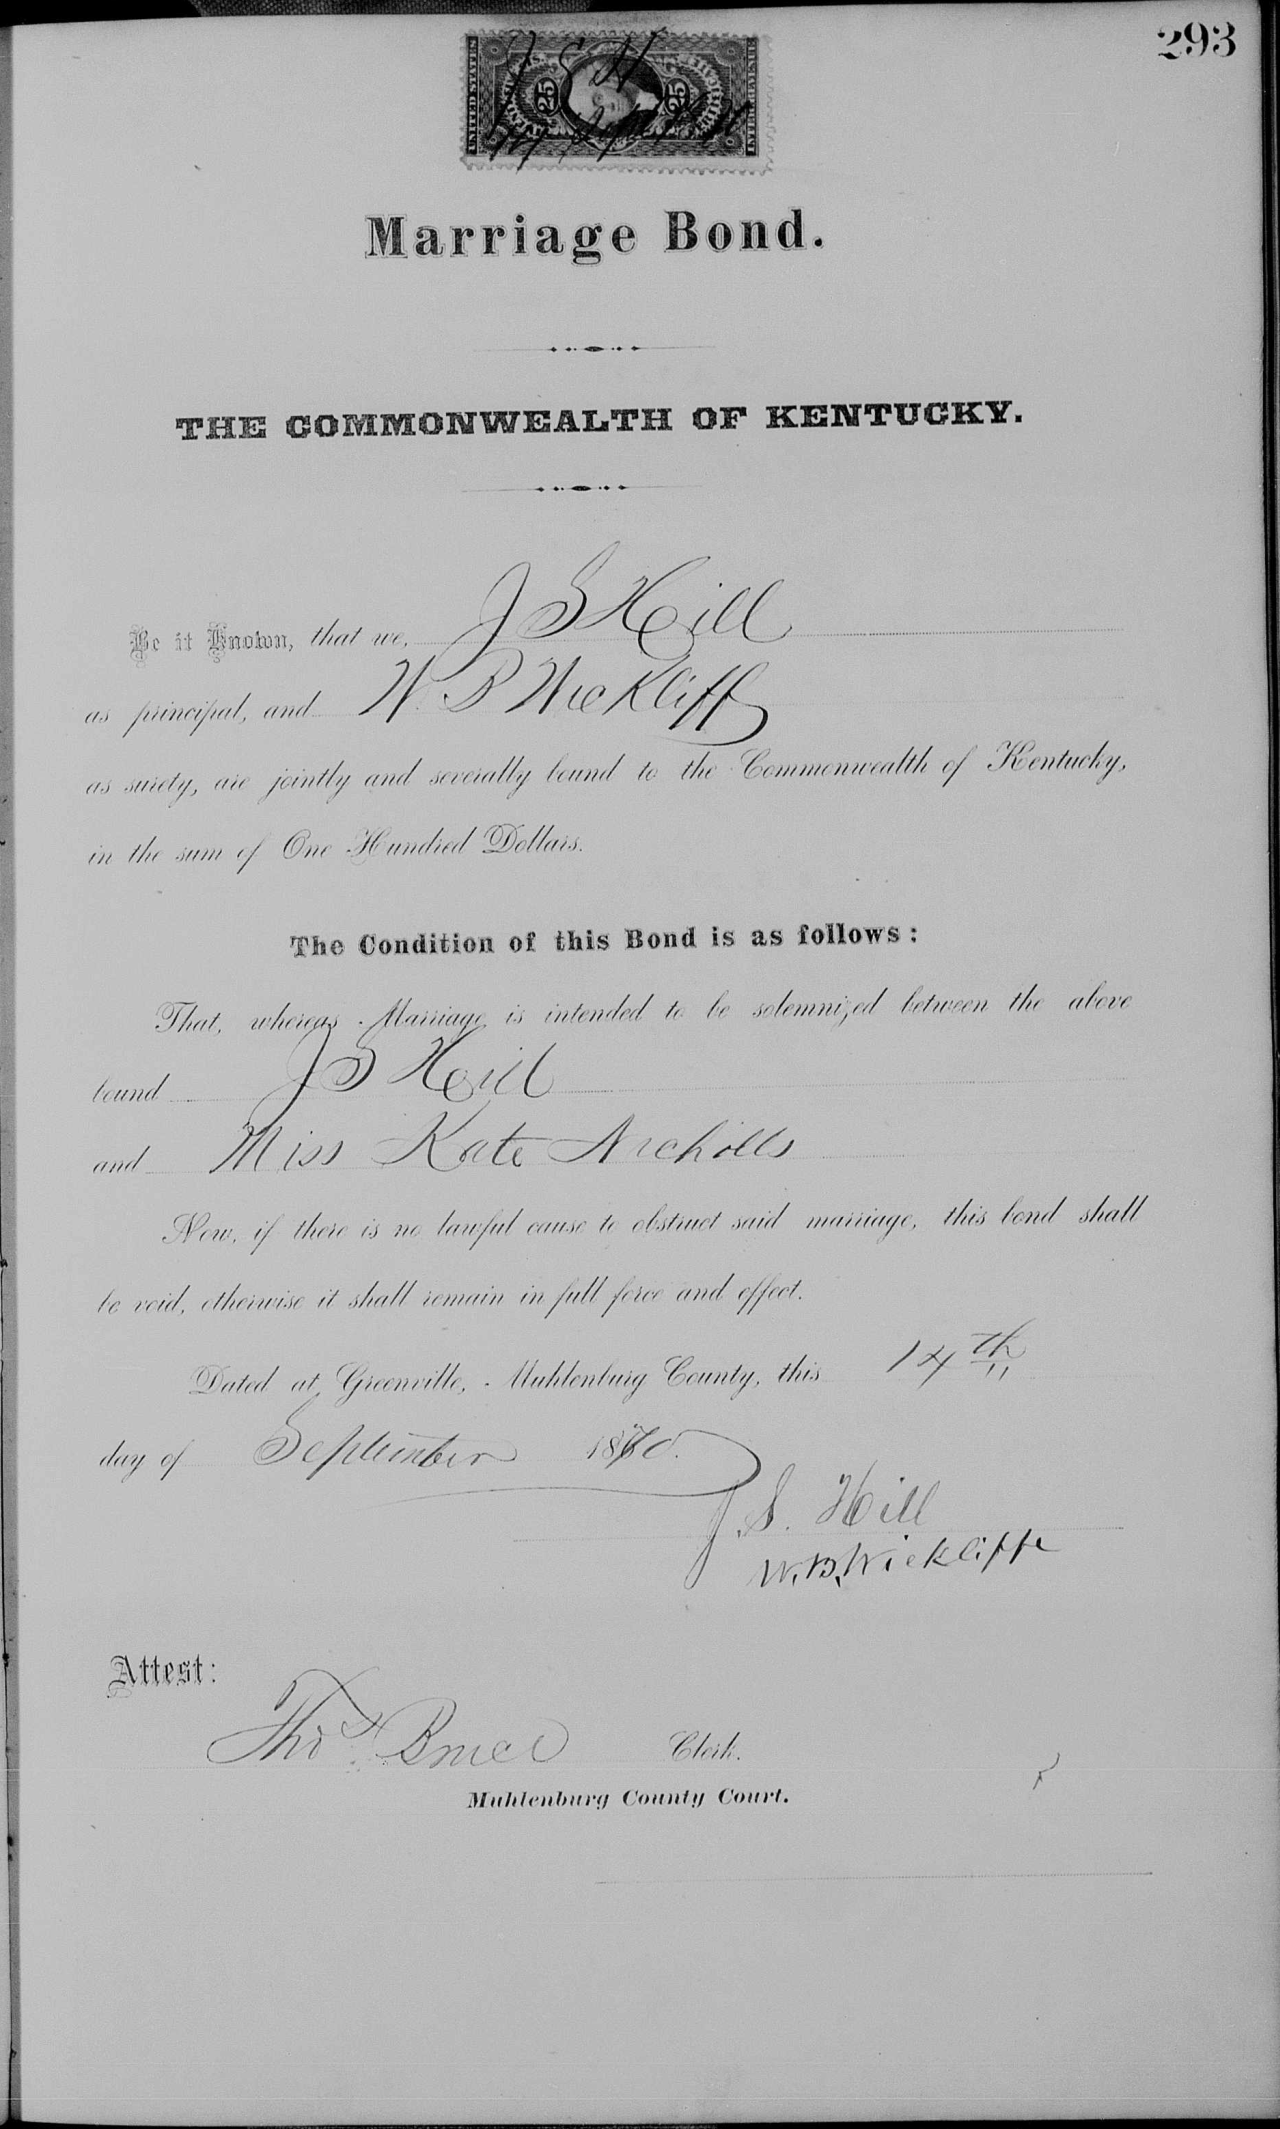 293
UNITED STATES
INTER. REVENUE
25 25
J S H
Sept
Marriage Bond.
THE COMMONWEALTH OF KENTUCKY.
Be it Known, that we, J S Hill
as principal, and W. B Wickliff
as surety, are jointly and severally bound to the Commonwealth of Kentucky,
in the sum of One Hundred Dollars.
The Condition of this Bond is as follows:
That, whereas Marriage is intended to be solemnized between the above
bound J S Hill
and Miss Kate Nicholls
Now, if there is no lawful cause to obstruct said marriage, this bond shall
be void, otherwise it shall remain in full force and effect.
Dated at Greenville, Muhlenburg County, this 14th
day of September 1870.
J. S. Hill
W. B. Wickliffe
Attest:
Thos Bruce Clerk.
Muhlenburg County Court.